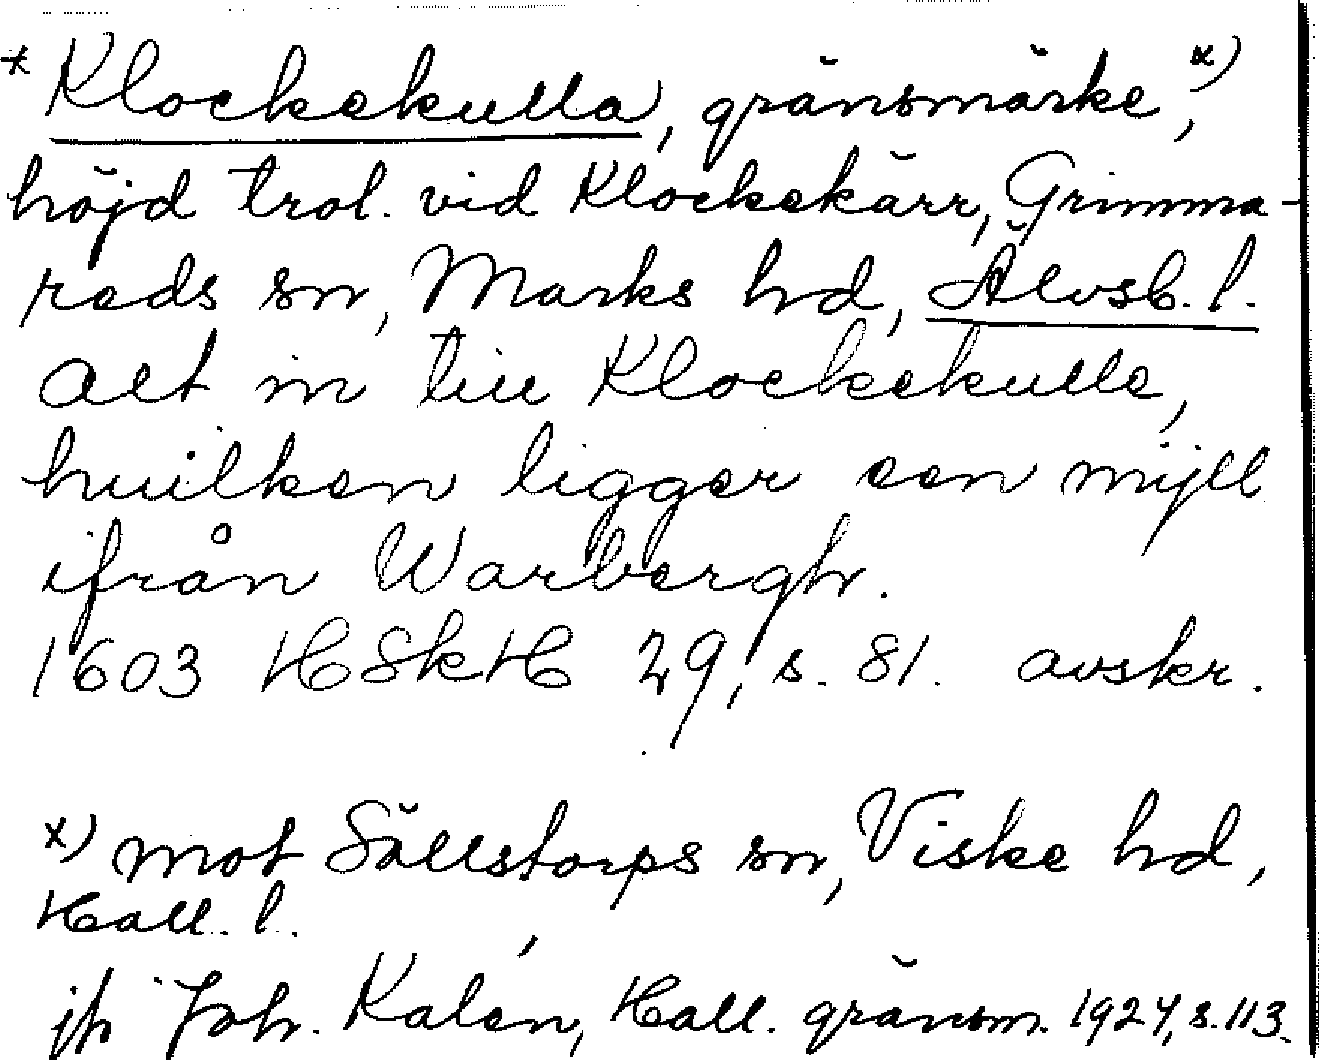 * Klockekulla, gränsmärke, x)
höjd trol. vid Klockekärr, Grimma-
reds sn, Marks hd, Älvsb. l.
alt in till Klockekulle,
huilken ligger een mijll
ifrån Warbergh.
1603 HSkH 29, s. 81. avskr.
x) mot Sällstorps sn, Viske hd,
Hall. l.
jfr Joh. Kalén, Hall. gränsm. 1927, s. 113.